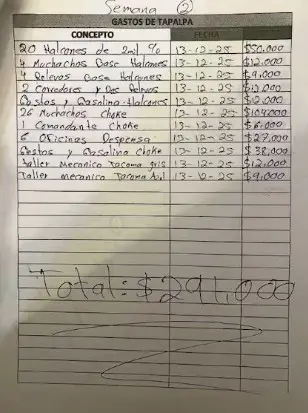 Semana 2
GASTOS DE TAPALPA
CONCEPTO FECHA
20 Halcones de 2mil % 13-12-25 $50.000
4 Muchachos Base Halcones 13-12-25 $12.000
4 Relevos Base Halcones 13-12-25 $9.000
2 Corredores y Dos Relevos 13-12-25
Gastos y Gasolina-Halcones 13-12-25
26 Muchachos Choke 13-12-25 $104.000
1 Comandante Choke 13-12-25 $6.000
6 Oficinas Despensa 13-12-25 $27.000
Gestos y Gasolina Choke 13-12-25 $38.000
Taller Mecanico Tacoma gris 13-12-25 $12.000
Taller mecanico Tacoma Azul 13-12-25 $9.000
Total: $291,000